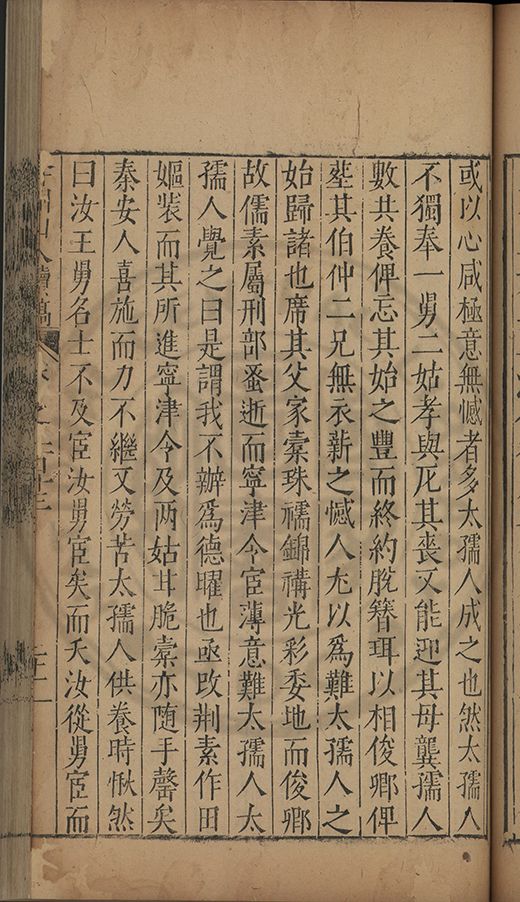 或以心咸極意無憾者多太孺人成之也然太孺人
不獨奉一舅二姑孝與庀其喪又能迎其母龔孺人
數共養俾忘其始之豐而終約脫簪珥以相俊卿俾
塟其伯仲二兄無衣薪之憾人尤以爲難太孺人之
始歸諸也席其父家橐珠襦錦褠光彩委地而俊卿
故儒素屬刑部蚤逝而寧津令宦薄意難太孺人太
孺人覺之曰是謂我不辦爲德曜也亟改荆素作田
嫗裝而其所進寧津令及两姑甘脆橐亦随手罄矣
秦安人喜施而力不繼又勞苦太孺人供養時愀然
曰汝王舅名士不及宦汝舅宦矣而夭汝從舅宦而
山人續稿 卷之